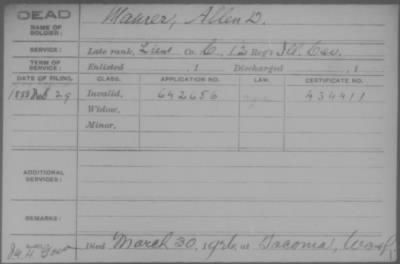 DEAD
NAME OF SOLDIER: Maurer, Allen D.
SERVICE: Late rank, Lieut Co. C, 13 Reg't Ill. Cav.
TERM OF SERVICE: Enlisted , 1 Discharged , 1
DATE OF FILING. CLASS. APPLICATION NO. LAW. CERTIFICATE NO.
1888 Feb 29 Invalid, 642656 434411
Widow,
Minor,
ADDITIONAL SERVICES:
REMARKS:
Died March 30, 1926, at Tacoma, Wash